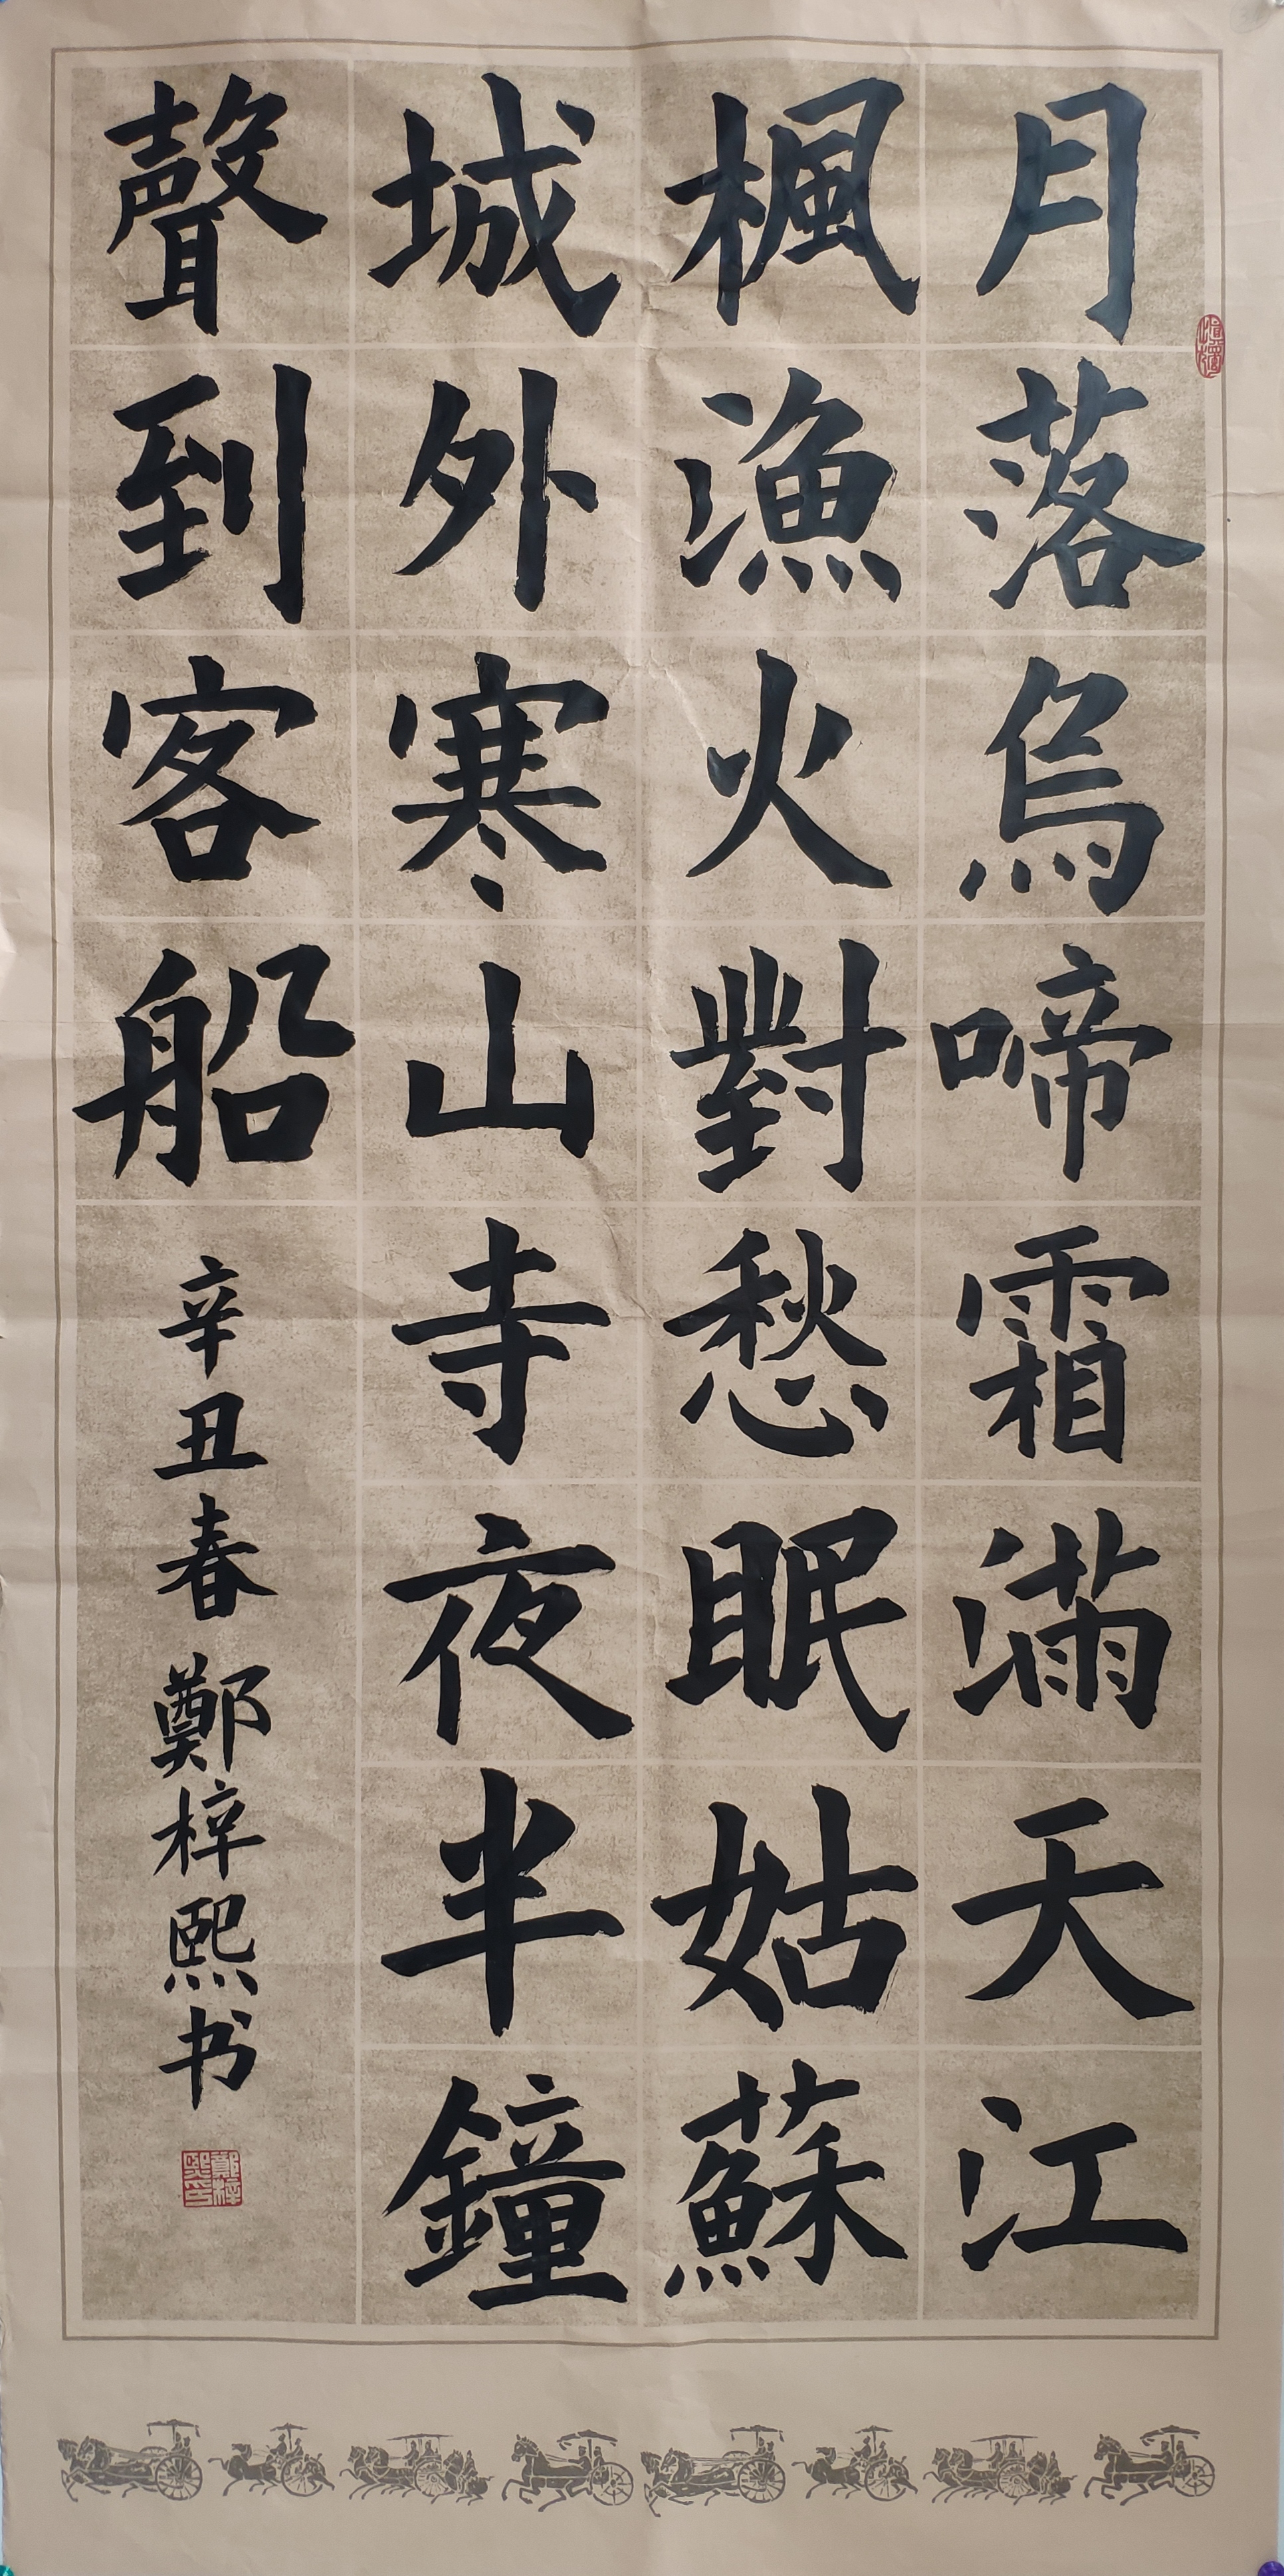 月落烏啼霜滿天江
楓漁火對愁眠姑蘇
城外寒山寺夜半鐘
聲到客船
辛丑春鄭梓熙书
鄭梓熙印